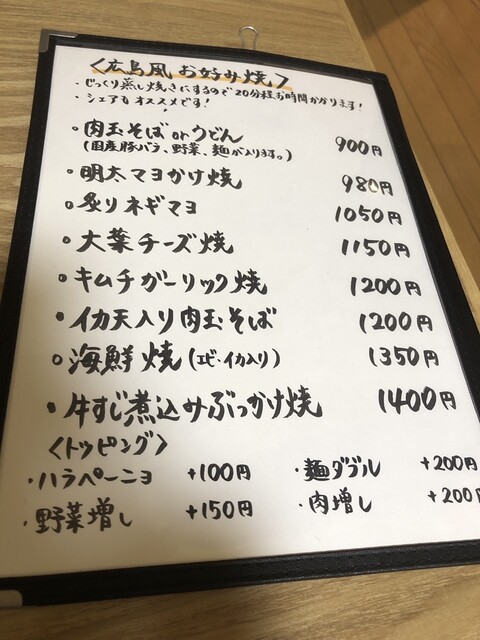 <広島風 お好み焼>
・じっくり蒸し焼きにするので20分程お時間かかります!
・シェアもオススメです!
・肉玉そばorうどん 900円
(国産豚バラ、野菜、麺が入ります。)
・明太マヨかけ焼 980円
・炙りネギマヨ 1050円
・大葉チーズ焼 1150円
・キムチガーリック焼 1200円
・イカ天入り肉玉そば 1200円
・海鮮焼(エビ・イカ入り) 1350円
・牛すじ煮込みぶっかけ焼 1400円
<トッピング>
・ハラペーニョ +100円 ・麺ダブル +200円
・野菜増し +150円 ・肉増し +200円